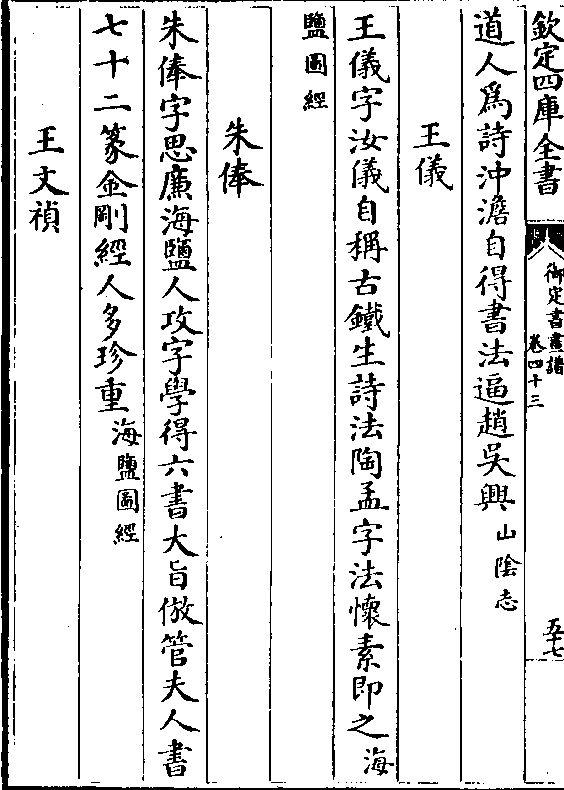 欽定四庫全書
御定書畫譜
卷四十三
五十七
道人爲詩沖澹自得書法逼趙吳興山陰志
王儀
王儀字汝儀自稱古鐵生詩法陶孟字法懷素即之海
鹽圖經
朱俸
朱俸字思廉海鹽人攻字學得六書大旨倣管夫人書
七十二篆金剛經人多珍重海鹽圖經
王文禎